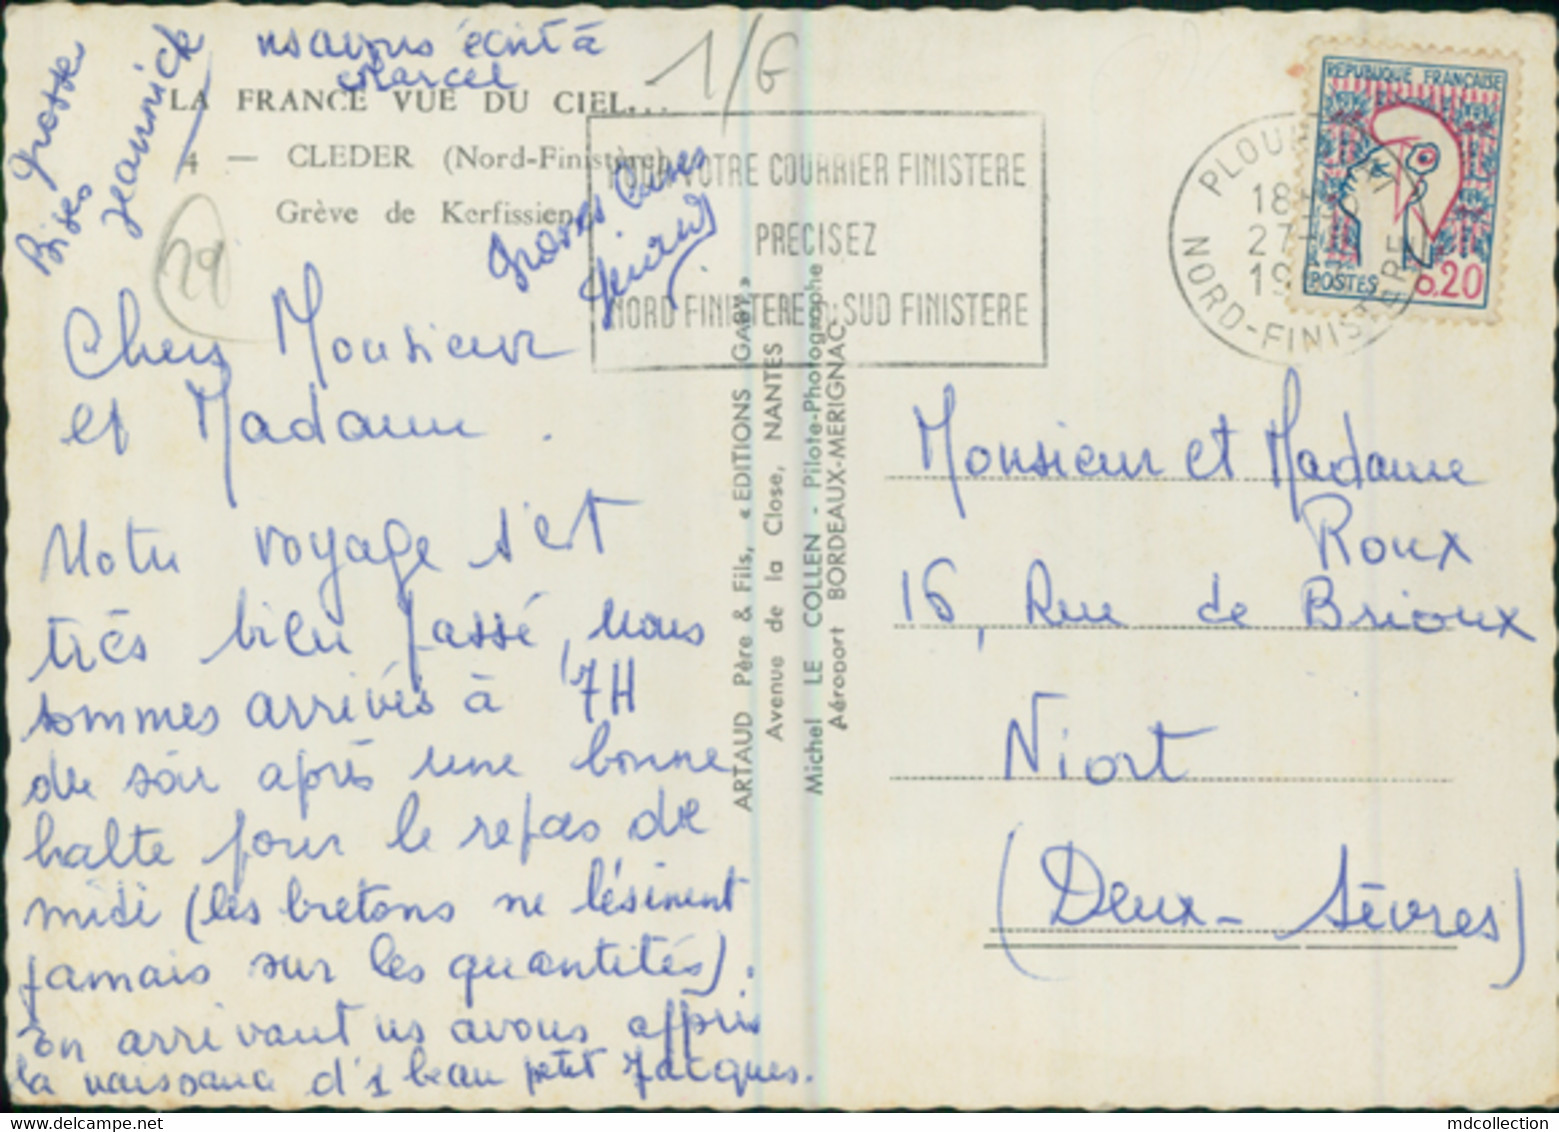 ns avons écrit à
Marcel
LA FRANCE VUE DU CIEL...
4 — CLEDER (Nord-Finistère)
Grève de Kerfissien
1/6
29
Grosses
Bises
Jeannick
Grosses bises
POUR VOTRE COURRIER FINISTERE
PRECISEZ
NORD FINISTERE OU SUD FINISTERE
NORD-FINISTERE
18
27
19
REPUBLIQUE FRANÇAISE
POSTES 0,20
Chers Monsieur
et Madame.
Notre voyage s'est
très bien passé, nous
sommes arrivés à 7H
du soir après une bonne
halte pour le repas de
midi (les bretons ne lésinent
jamais sur les quantités).
En arrivant ns avons appris
la naissance d'1 beau petit Jacques.
ARTAUD Père & Fils, « EDITIONS GABY »
Avenue de la Close, NANTES
Michel LE COLLEN - Pilote-Photographe
Aéroport BORDEAUX-MERIGNAC
Monsieur et Madame
Roux
16, Rue de Brioux
Niort
(Deux-Sèvres)
mdcollection